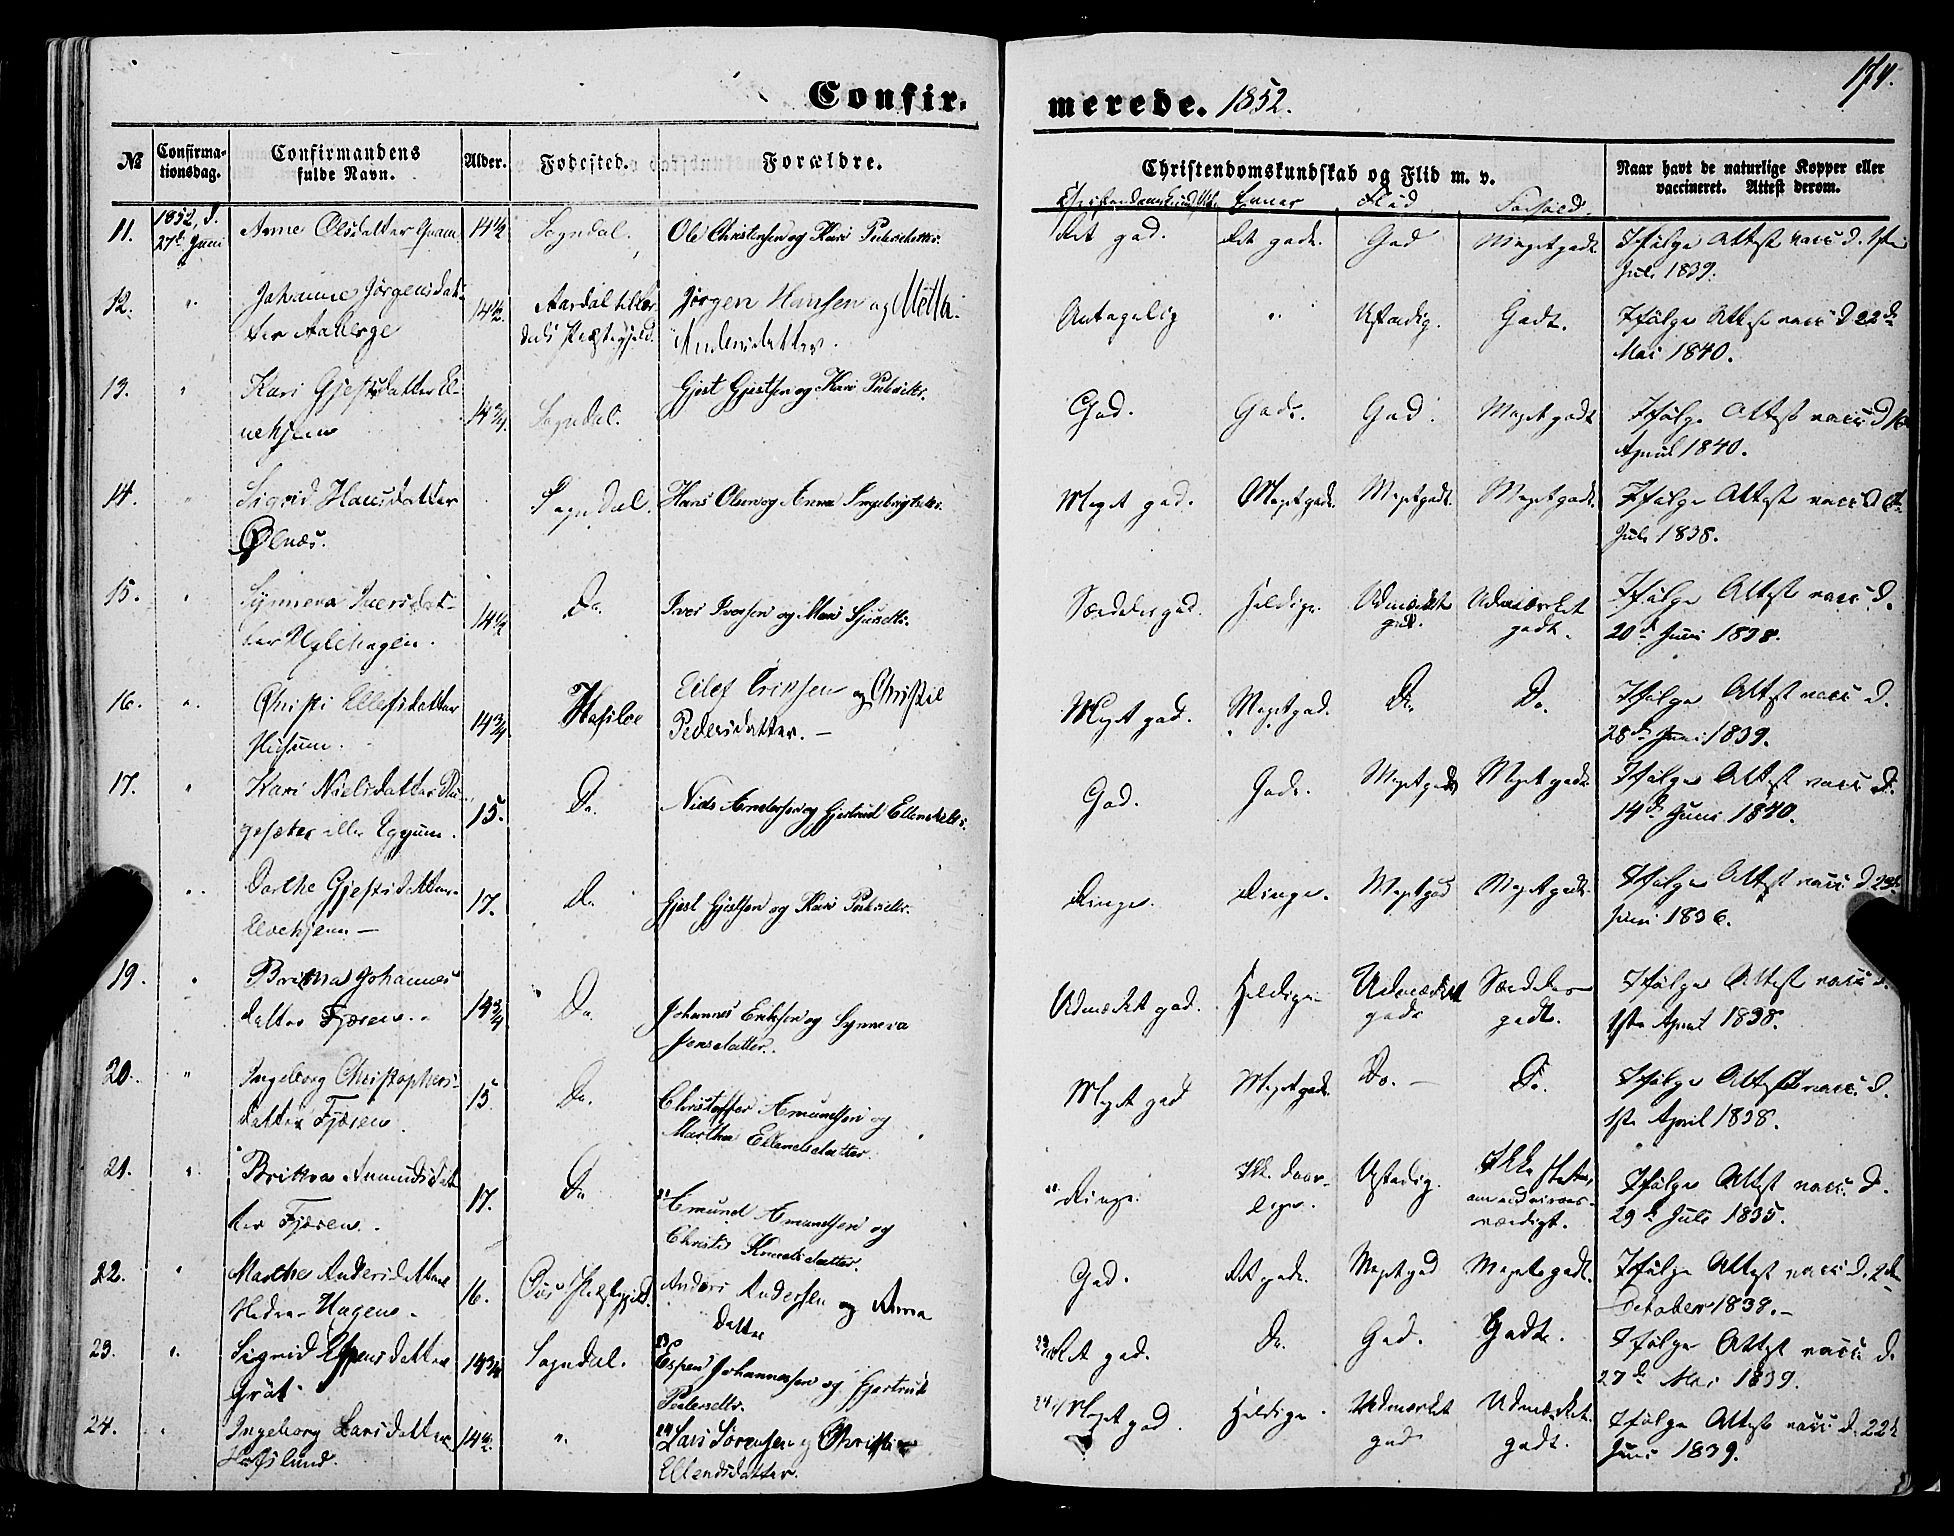 Confirmerede. 1852.
174.
№ Confirmationsdag. Confirmandens fulde Navn. Alder. Fødested. Forældre. Christendomskundskab og Flid m. v. Naar havt de naturlige Kopper eller vaccineret. Attest derom.
Evner Flid Forhold.
11. 1852, d. 27de Juni Anne Olsdatter Quam 14½ Sogndal. Ole Christensen og Kari Pedersdatter. Ret god. Ret gode. God Meget godt. Ifølge Attest vacc. d. 1ste Juli 1839.
12. " Johanne Jørgensdatter Aaberge 14½. Aardal Præstegjeld. Jørgen Hansen og Metta Andersdatter. Antagelig " Ustadig. Godt. Ifølge Attest vacc. d. 22de Mai 1840.
13. " Kari Gjestsdatter Elvehjem 14¾. Sogndal. Gjest Gjestsen og Kari Pedersdtr. God. Gode. God. Meget godt Ifølge Attest vacc. d. April 1840.
14. " Sigrid Hansdatter Ølnæs. Sogndal. Hans Olsen og Anna Ingebrigtsdtr. Meget god. Meget gode. Meget god. Meget godt. Ifølge Attest vacc. d. Juli 1838.
15. " Synneva Iversdatter 14½ Do. Iver Iversen og Mari Sjursdtr. Særdeles god. Heldige. Udmærket god. Udmærket godt. Ifølge Attest vacc. d. 20de Juni 1838.
16. " Christi Ellefsdatter 14¾ Hafsloe Eilef Eriksen og Christie Pedersdatter. — Meget god. Meget god. Do. Do. Ifølge Attest vacc. d. 28de Juni 1839.
17. " Kari Nielsdatter eller Eggum. 15. Do. Niels Andersen og Gjertrud Ellendsdtr. God. Gode. Meget god Meget godt. Ifølge Attest vacc. d. 14de Juni 1840.
" Dorthe Gjestsdatter Elvehjem — 17. Do. Gjest Gjestsen og Kari Pedersdtr. Ringe. Ringe. Meget god Meget godt. Ifølge Attest vacc. d. Juni 1836.
19. " Britha Johannesdatter Fjæren. 14¾ Do. Johannes Eriksen og Synneva Jensdatter. Udmærket god. Heldige Udmærket god Særdeles godt. Ifølge Attest vacc. d. 1ste April 1838.
20. " Ingeborg Christophersdatter Fjæren. 15. Do. Christoffer Amundsen og Martha Ellendsdatter. Meget god Meget gode. Do. — Do. Ifølge Attest vacc. d. 1ste April 1838.
21. " Britha Amundsdatter Fjæren. 17. Do Amund Amundsen og Christi Knudsdatter. Ringe. Ikke daarlige. Ustadig. Ikke Ifølge Attest vacc. d. 29de Juli 1835.
22. " Marthe Andersdatter Hagen. 16. Præstegjeld. Anders Andersen og Anna datter God. Ret gode. Meget god Meget godt. Ifølge Attest vacc. d. 2den October 1838. —
23. " Sigrid Espensdatter 14¾ Sogndal. Espen Johannessen og Gjertrud Pedersdtr. Ret god. Do. God. Godt. Ifølge Attest vacc. d. 27de Mai 1839.
24. " Ingeborg Larsdatter Hofslund. 14½. " Lars Sørensen og Christi Ellendsdatter. Meget god. Heldige. Udmærket god Udmærket godt. Ifølge Attest vacc. d. 22de Juni 1839.